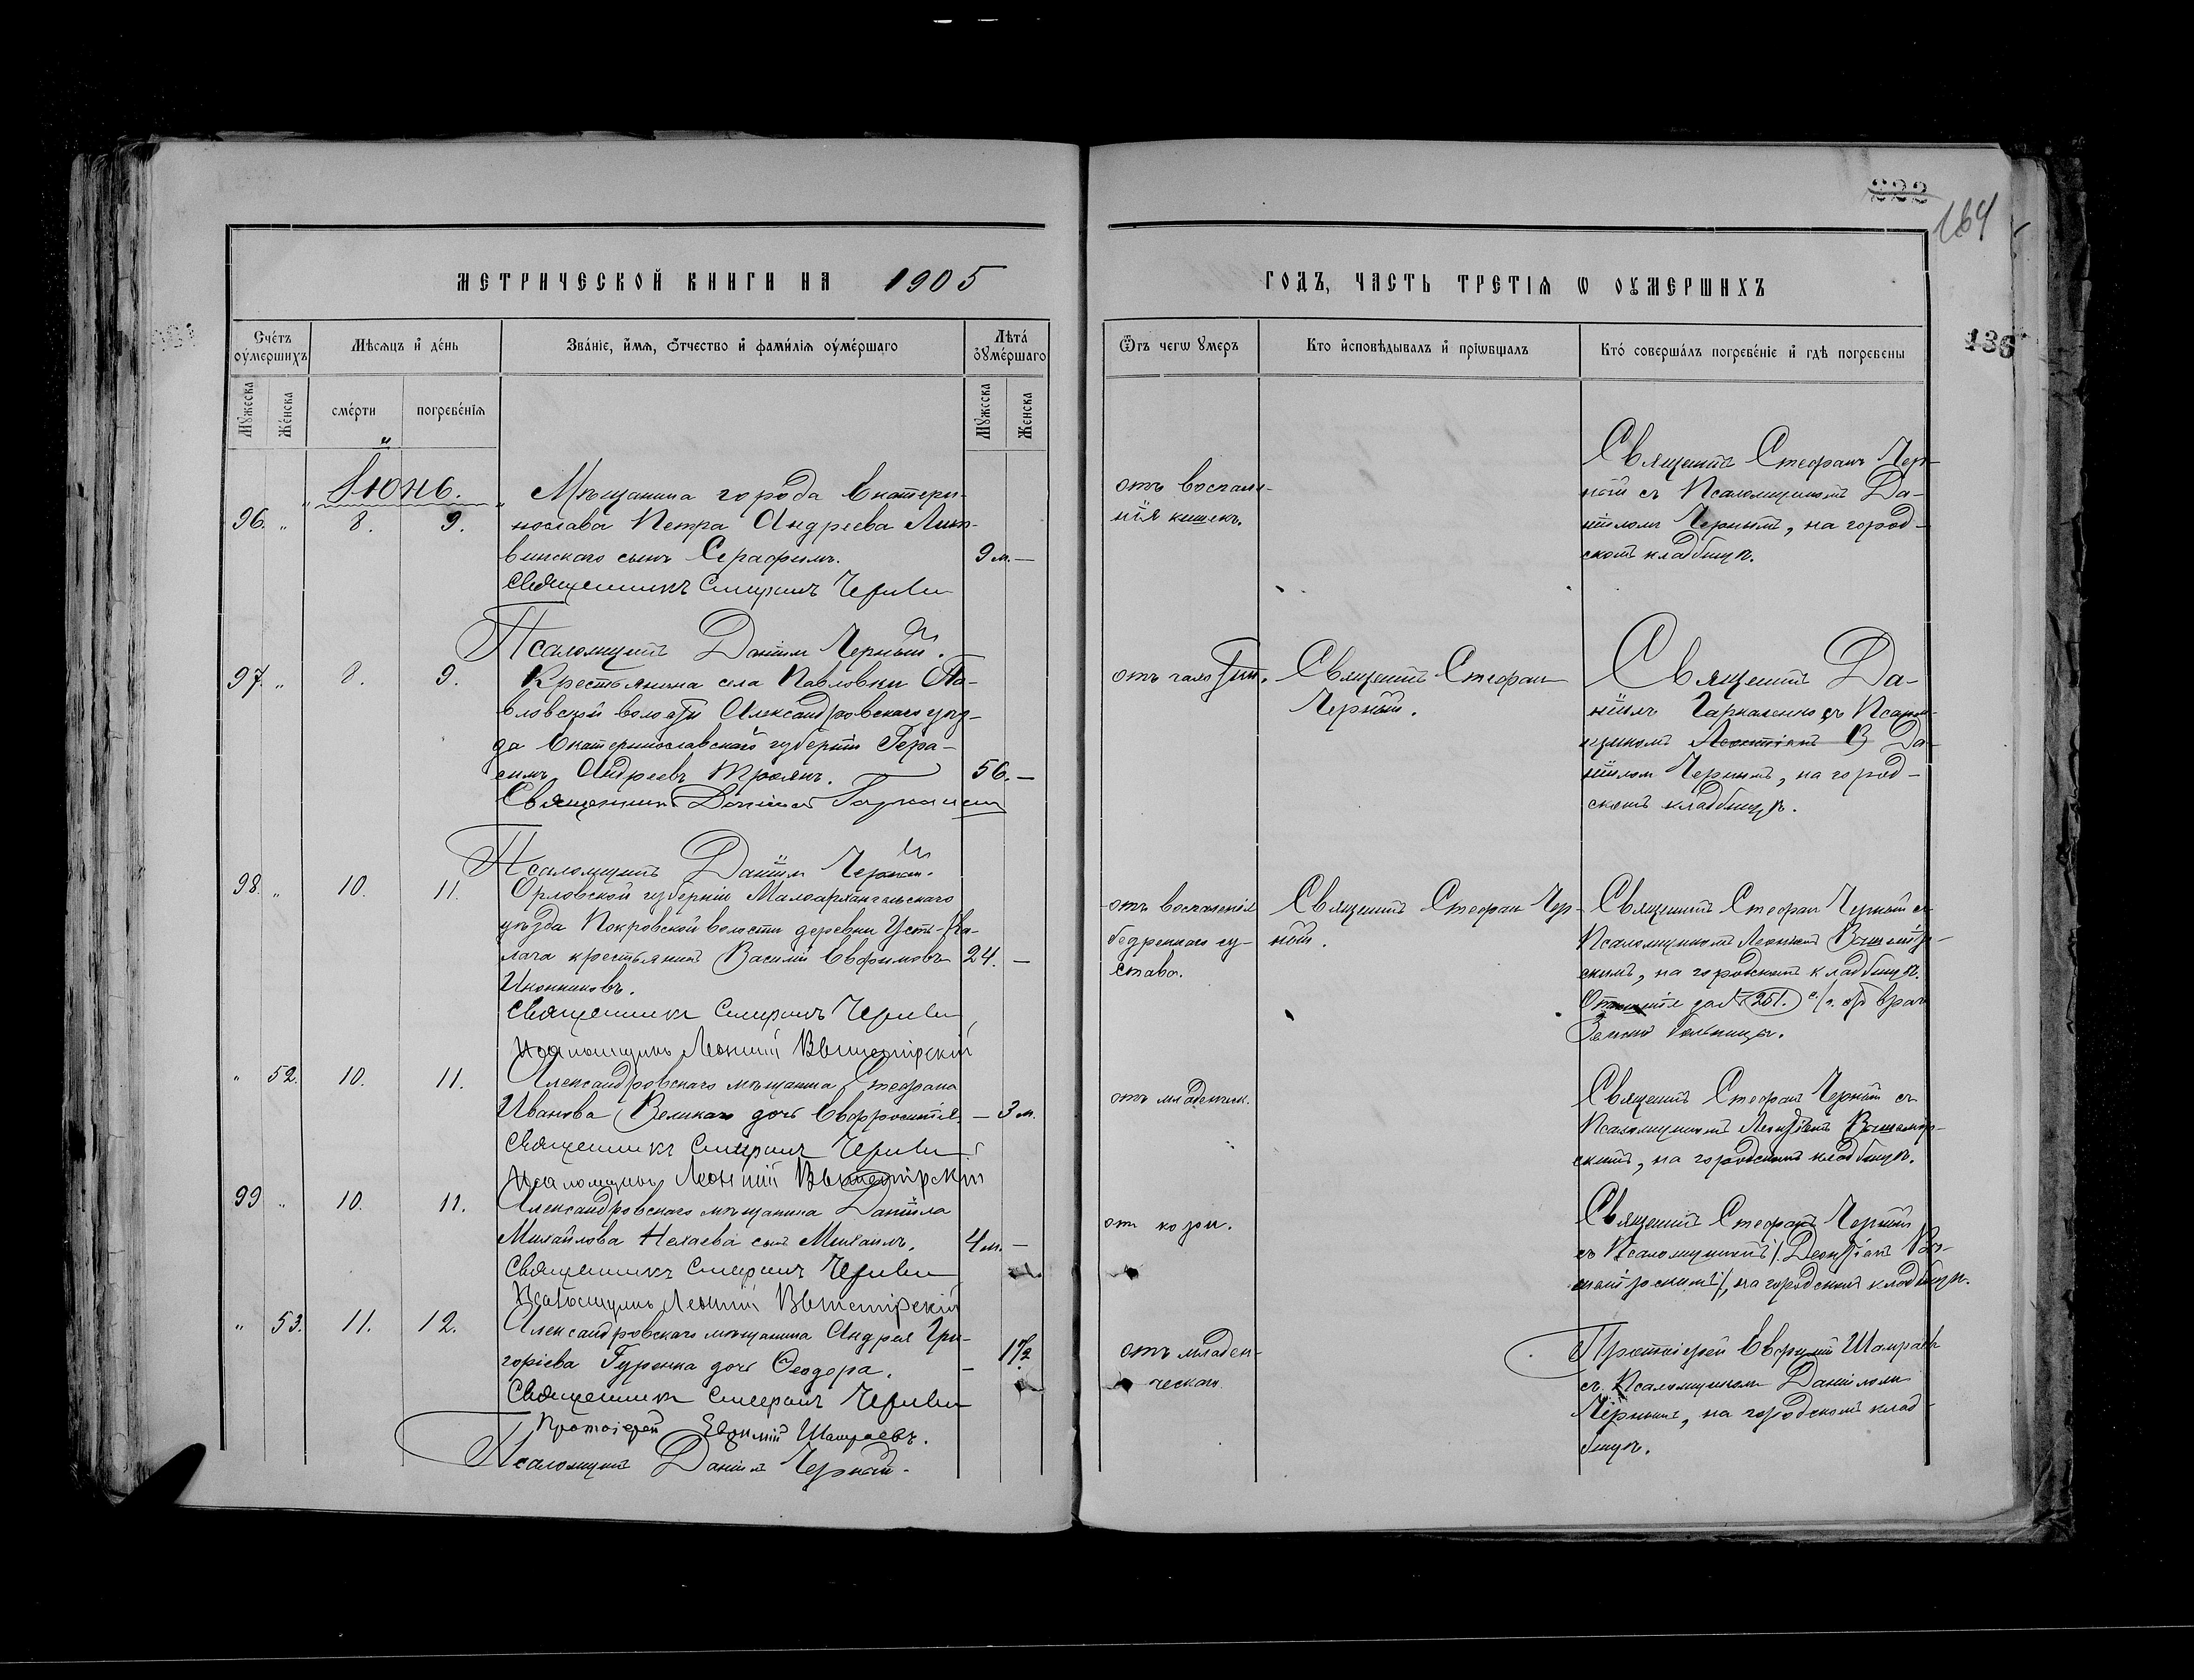 222
164
136
МЕТРИЧЕСКОЙ КНИГИ НА 1905
ГОДЪ, ЧАСТЬ ТРЕТІѦ Ѡ ОУМЕРШИХЪ
Счетъ оумершихъ
Мѣсяцъ и день
Званіе, имя, отчество и фамилія оумершаго
Лѣта оумершаго
Мужеска
Женска
смерти
погребенія
Мужеска
Женска
Отъ чегѡ умеръ
Кто исповѣдывалъ и пріѡбщалъ
Кто совершалъ погребеніе и гдѣ погребены
Іюнь.
96. " 8. 9.
Мѣщанина города Екатери-
нослава Петра Андреева Лит-
винскаго сынъ Серафимъ.
9 м. —
Священникъ Стефанъ Черный
Псаломщикъ Даніилъ Черный.
отъ воспале-
нія кишекъ.
Священникъ Стефанъ Чер-
ный съ Псаломщикомъ Да-
ніиломъ Чернымъ, на город-
скомъ кладбищѣ.
97. " 8. 9.
Крестьянина села Павловки Па-
вловской волости Александровскаго уѣз-
да Екатеринославской губерніи Гера-
симъ Андреевъ Троянъ.
56. —
Священникъ Даніилъ
Псаломщикъ Даніилъ Черный.
отъ
Священникъ Стефанъ
Черный.
Священникъ Да-
ніилъ съ Псалом-
щикомъ Леонтіемъ В Да-
ніиломъ Чернымъ, на город-
скомъ кладбищѣ.
98. " 10. 11.
Орловской губерніи Малоархангельскаго
уѣзда Покровской волости деревни Усть-
крестьянинъ Василій Евфимовъ
Иконниковъ.
24. —
Священникъ Стефанъ Черный
Псаломщикъ Леонтій
отъ воспаленія
бедреннаго су-
става.
Священникъ Стефанъ Чер-
ный.
Священникъ Стефанъ Черный съ
Псаломщикомъ Леонтіемъ
скимъ, на городскомъ кладбищѣ.
Отношеніе за № 251. отъ врача
Земской больницы.
" 52. 10. 11.
Александровскаго мѣщанина Стефана
Иванова Великаго дочь Евфросинія.
— 3 м.
Священникъ Стефанъ Черный
Псаломщикъ Леонтій
отъ младенческ.
Священникъ Стефанъ Черный съ
Псаломщикомъ Леонтіемъ
скимъ, на городскомъ кладбищѣ.
99 " 10. 11.
Александровскаго мѣщанина Даніила
Михайлова Нехаева сынъ Михаилъ.
4 м. —
Священникъ Стефанъ Черный
Псаломщикъ Леонтій
отъ кори.
Священникъ Стефанъ Черный
съ Псаломщикомъ Леонтіемъ
на городскомъ кладбищѣ.
" 53. 11. 12.
Александровскаго мѣщанина Андрея Гри-
горіева Гуренка дочь Ѳеодора.
— 1½
Священникъ Стефанъ Черный
Протоіерей Евфимій Шамраевъ.
Псаломщикъ Даніилъ Черный.
отъ младен-
ческаго
Протоіерей Евфимій Шамраевъ
съ Псаломщикомъ Даніиломъ
Чернымъ, на городскомъ клад-
бищѣ.